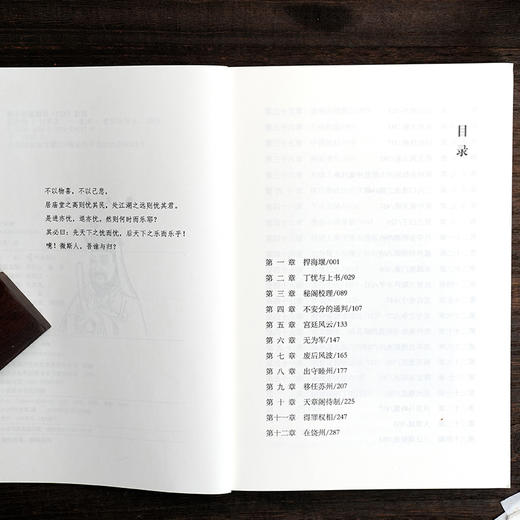 不以物喜，不以己悲，
居庙堂之高则忧其民，处江湖之远则忧其君。
是进亦忧，退亦忧。然则何时而乐耶？
其必曰：先天下之忧而忧，后天下之乐而乐乎！
噫！微斯人，吾谁与归？
目录
第一章 捍海堰/001
第二章 丁忧与上书/029
第三章 秘阁校理/089
第四章 不安分的通判/107
第五章 宫廷风云/133
第六章 无为军/147
第七章 废后风波/165
第八章 出守睦州/177
第九章 移任苏州/207
第十章 天章阁待制/225
第十一章 得罪权相/247
第十二章 在饶州/287